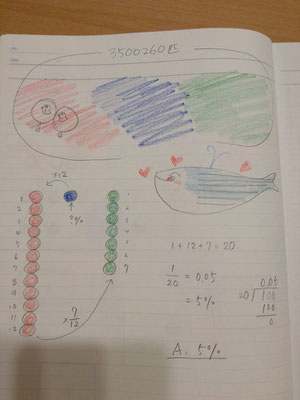 3500260匹
×12
?%
1
2
3
4
5
6
7
8
9
10
11
12
1
2
3
4
5
6
7
× 7/12
1 + 12 + 7 = 20
1/20 = 0.05
= 5%
0.05
20)100
100
0
A. 5%